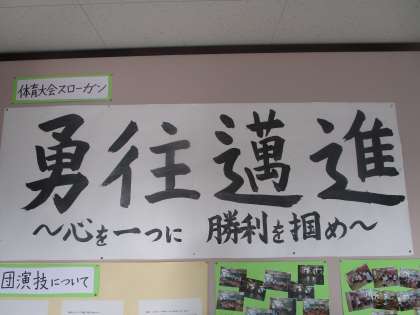 体育大会スローガン
勇往邁進
～心を一つに 勝利を掴め～
団演技について